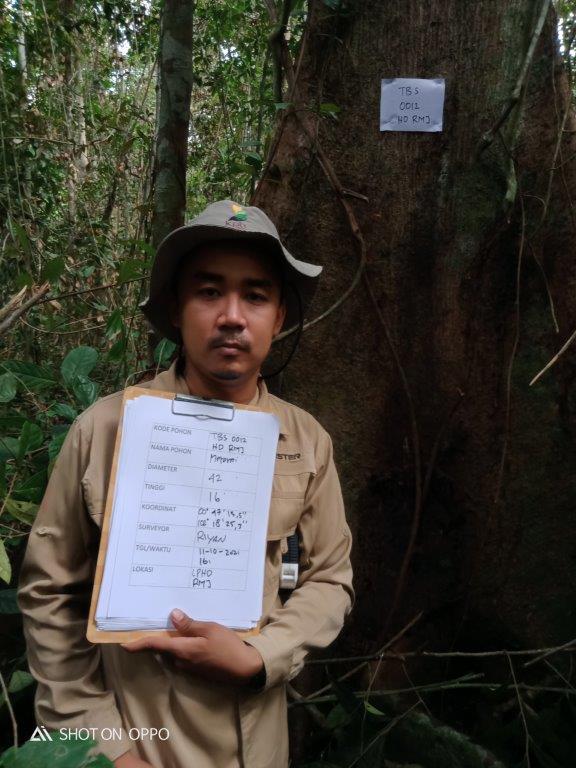 TBS
0012
HD RMJ
KODE POHON TBS 0012
HD RMJ
NAMA POHON
DIAMETER 42
TINGGI 16
KOORDINAT 00° 47' 18,5"
102° 18' 25,3"
SURVEYOR RIYAN
TGL/WAKTU 11-10-2021
161
LOKASI LPHD
RMJ
SHOT ON OPPO